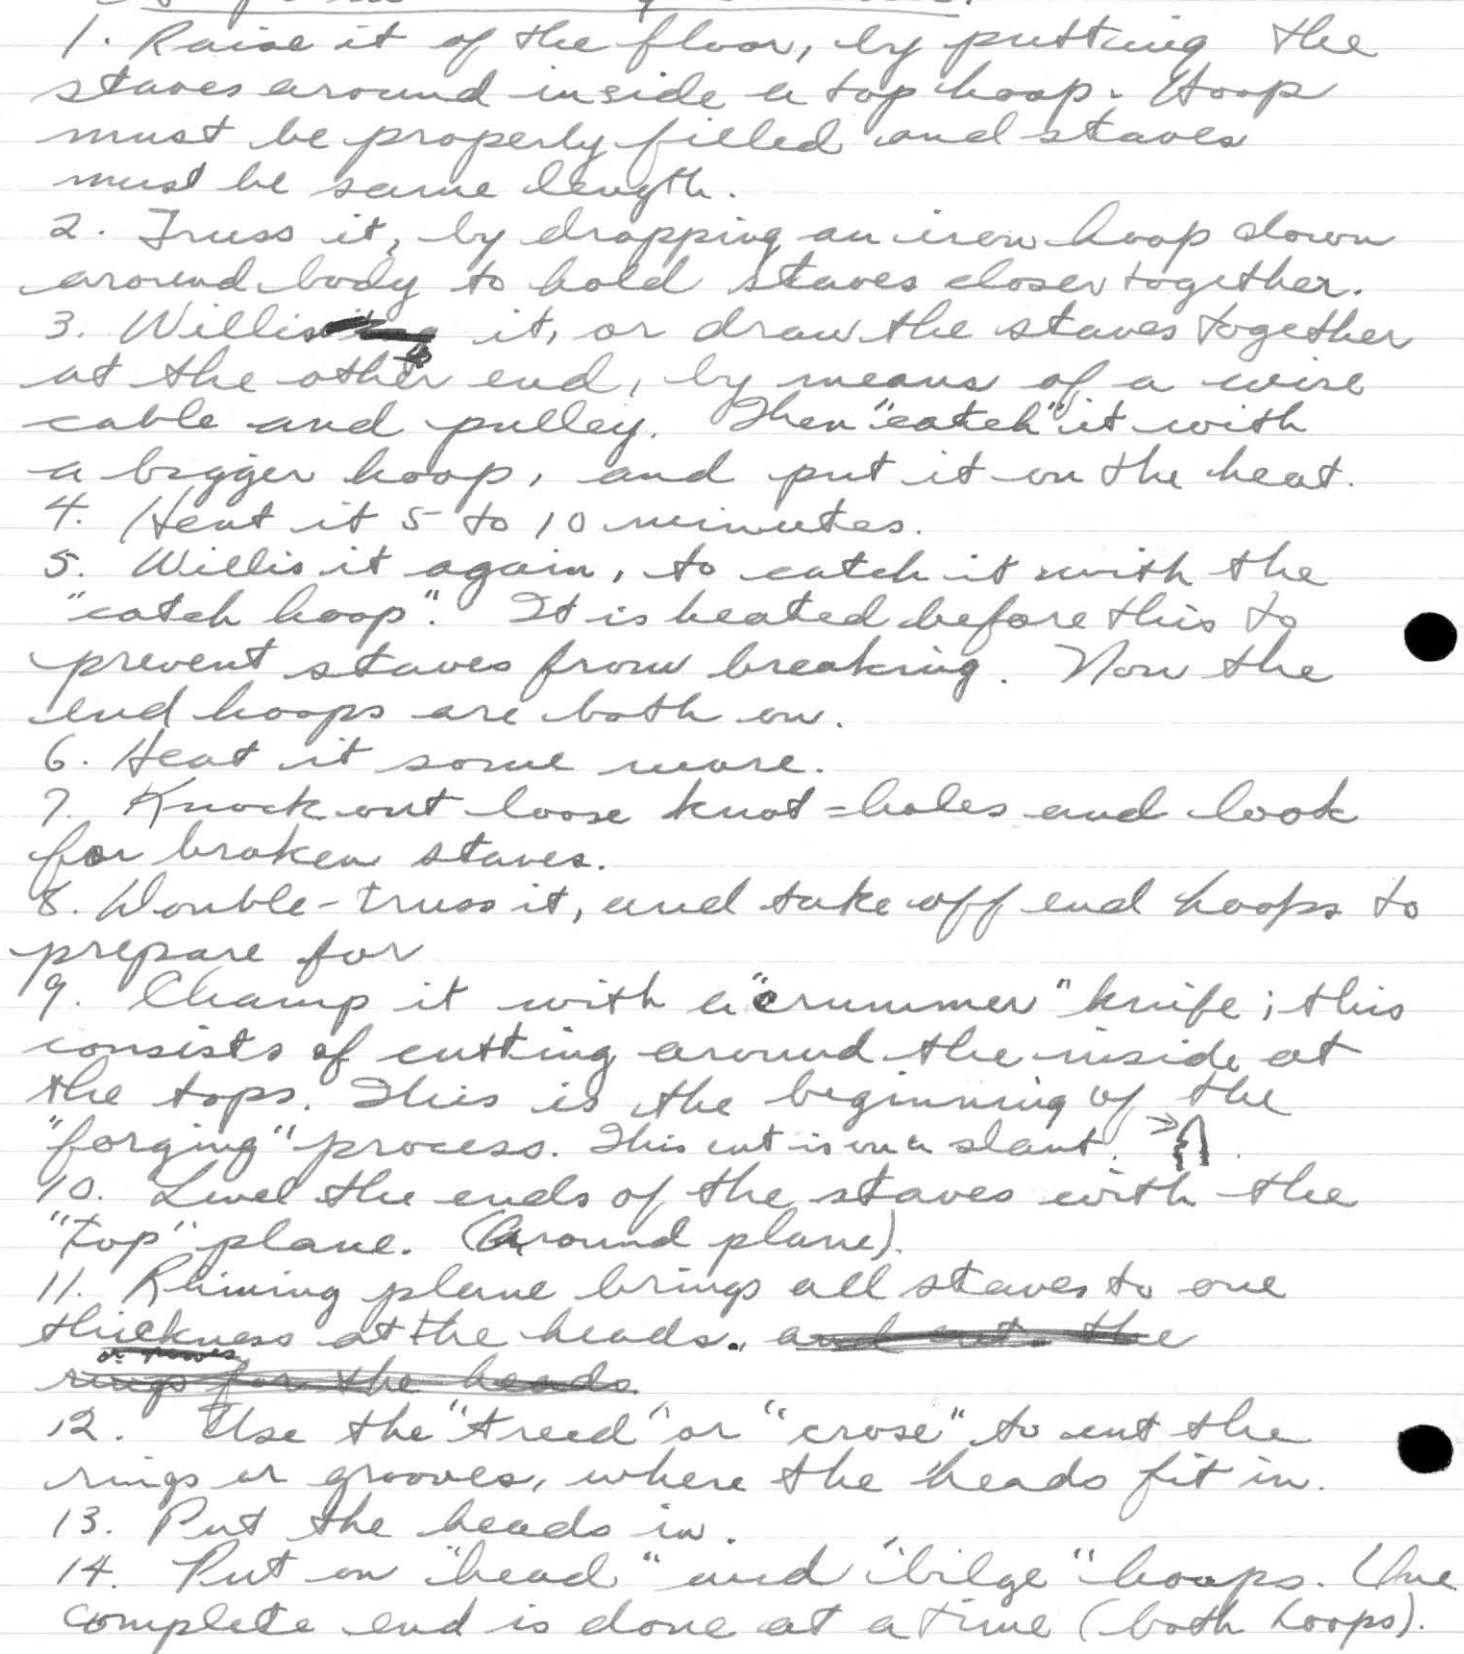 1. Raise it of the floor, by putting the
staves around inside a top hoop. Hoop
must be properly filled and staves
must be same length.
2. Truss it, by dropping an iron hoop down
around body to hold staves closer together.
3. Willis it, or draw the staves together
at the other end, by means of a wire
cable and pulley. Then "catch" it with
a bigger hoop, and put it on the heat.
4. Heat it 5 to 10 minutes.
5. Willis it again, to catch it with the
"catch hoop". It is heated before this to
prevent staves from breaking. Now the
end hoops are both on.
6. Heat it some more.
7. Knock out loose knot=holes and look
for broken staves.
8. Double-truss it, and take off end hoops to
prepare for
9. Champ it with a "crummer" knife; this
consists of cutting around the inside at
the tops. This is the beginning of the
"forging" process. This cut is on a slant.
10. Level the ends of the staves with the
"top" plane. (Around plane).
11. Rhiming plane brings all staves to one
thickness at the heads. and cuts the
or grooves
rings for the heads.
12. Use the "treed" or "crose" to cut the
rings or grooves, where the heads fit in.
13. Put the heads in.
14. Put on "head" and "bilge" hoops. One
complete end is done at a time (both hoops).